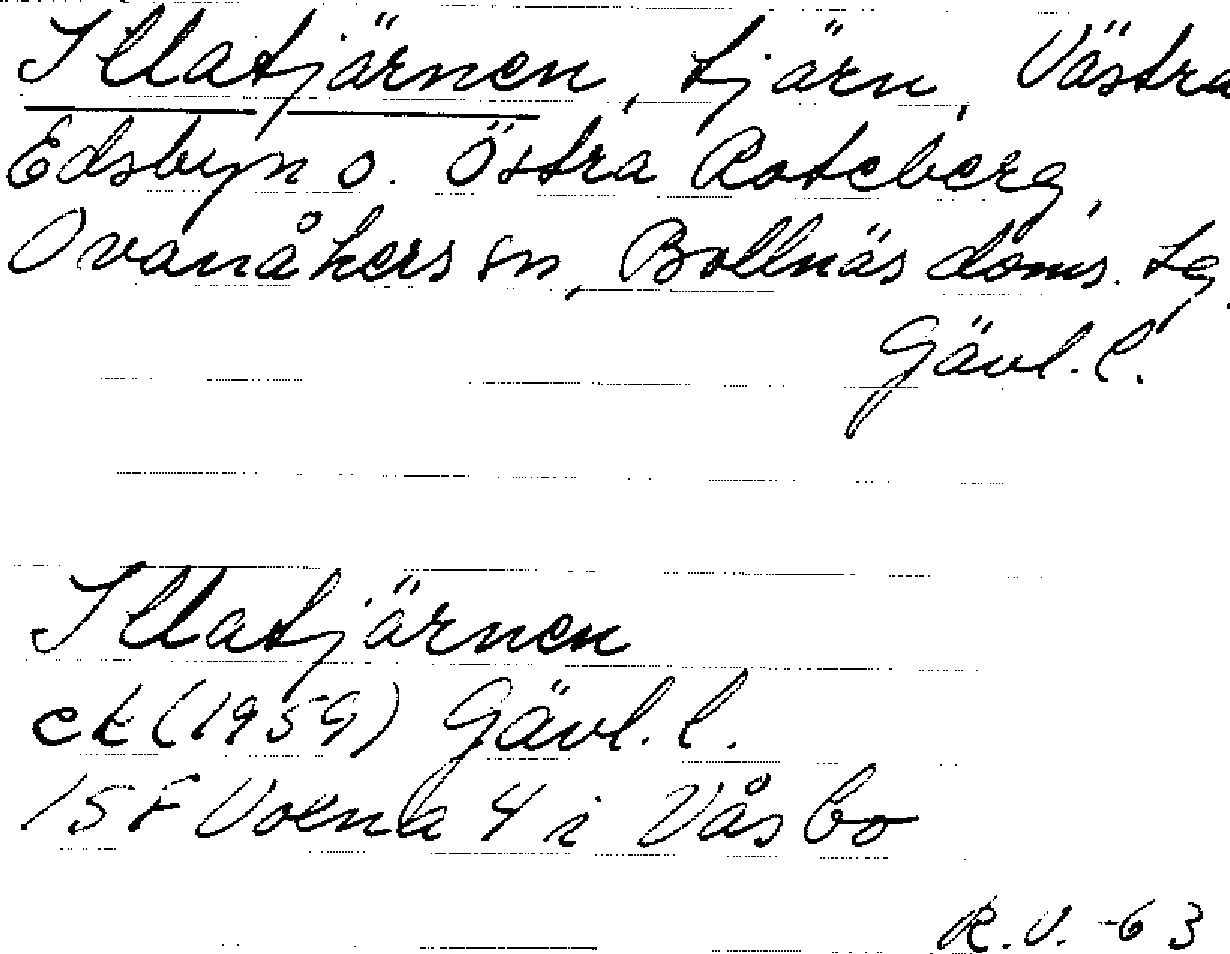 Illatjärnen, tjärn, Västra
Edsbyn o. Östra Roteberg,
Ovanåkers sn, Bollnäs doms. tg
Gävl. l.
Illatjärnen
ek (1959) Gävl. l.
15F Voxna 4 i Våsbo
R.V. -63